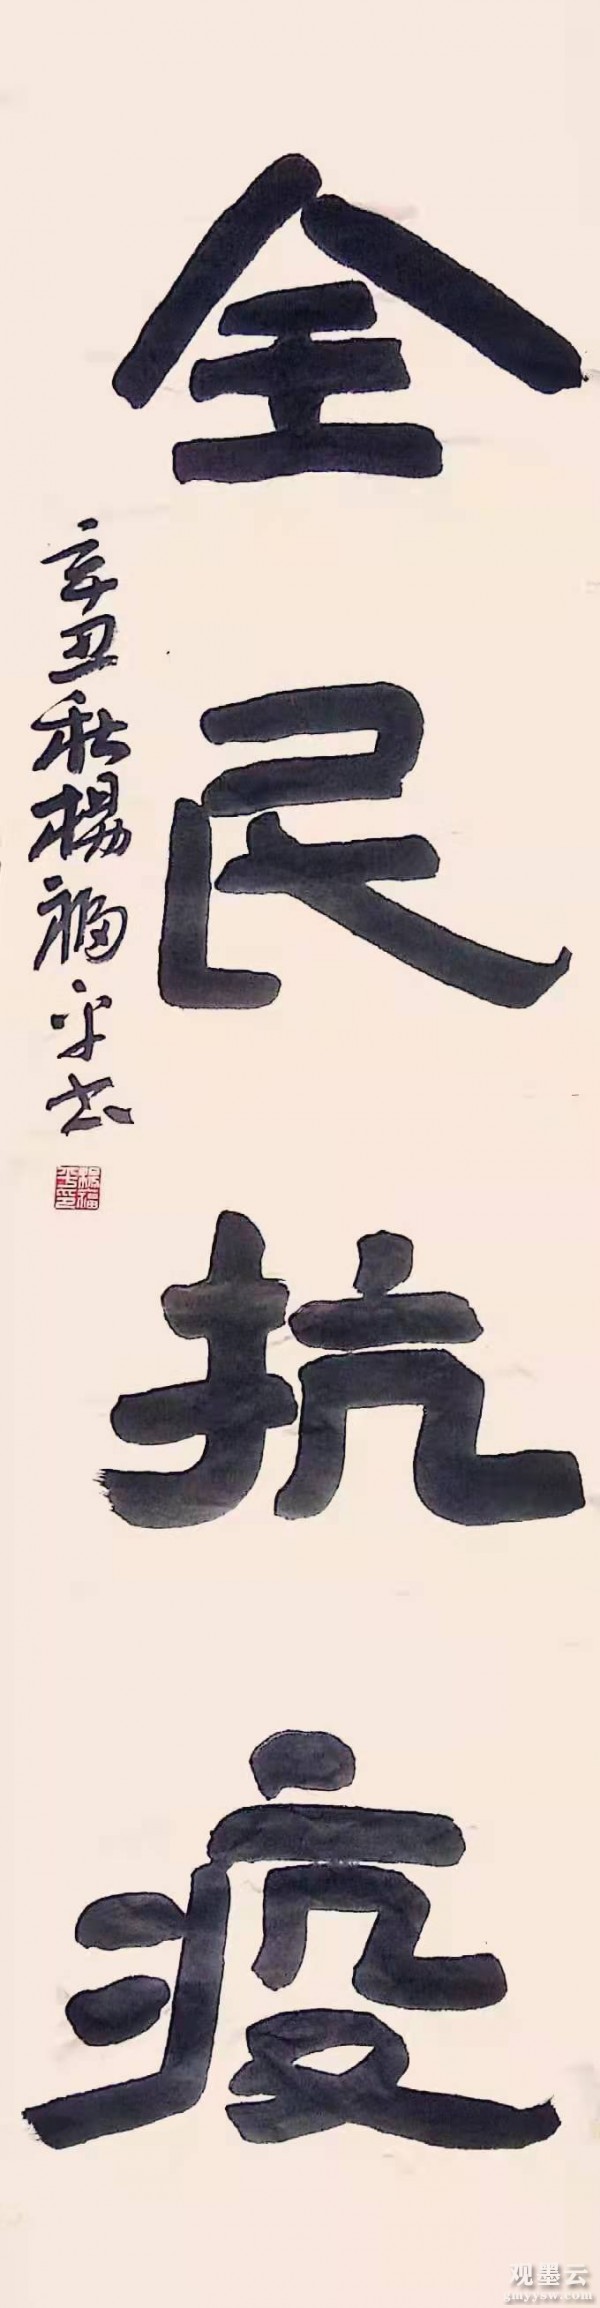 全民抗疫
辛丑秋楊福平书
楊福平印
观墨云
gmyysw.com